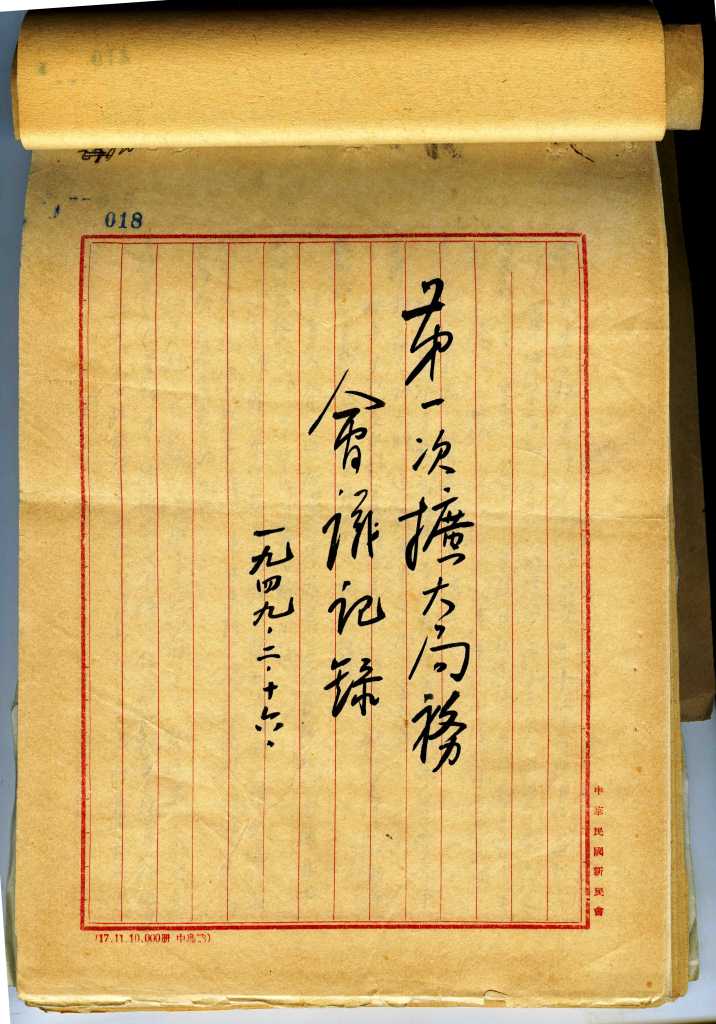 018
第一次擴大局務
會議記錄
一九四九.二.十六.
中華民國新民會
(17.11.10,000册